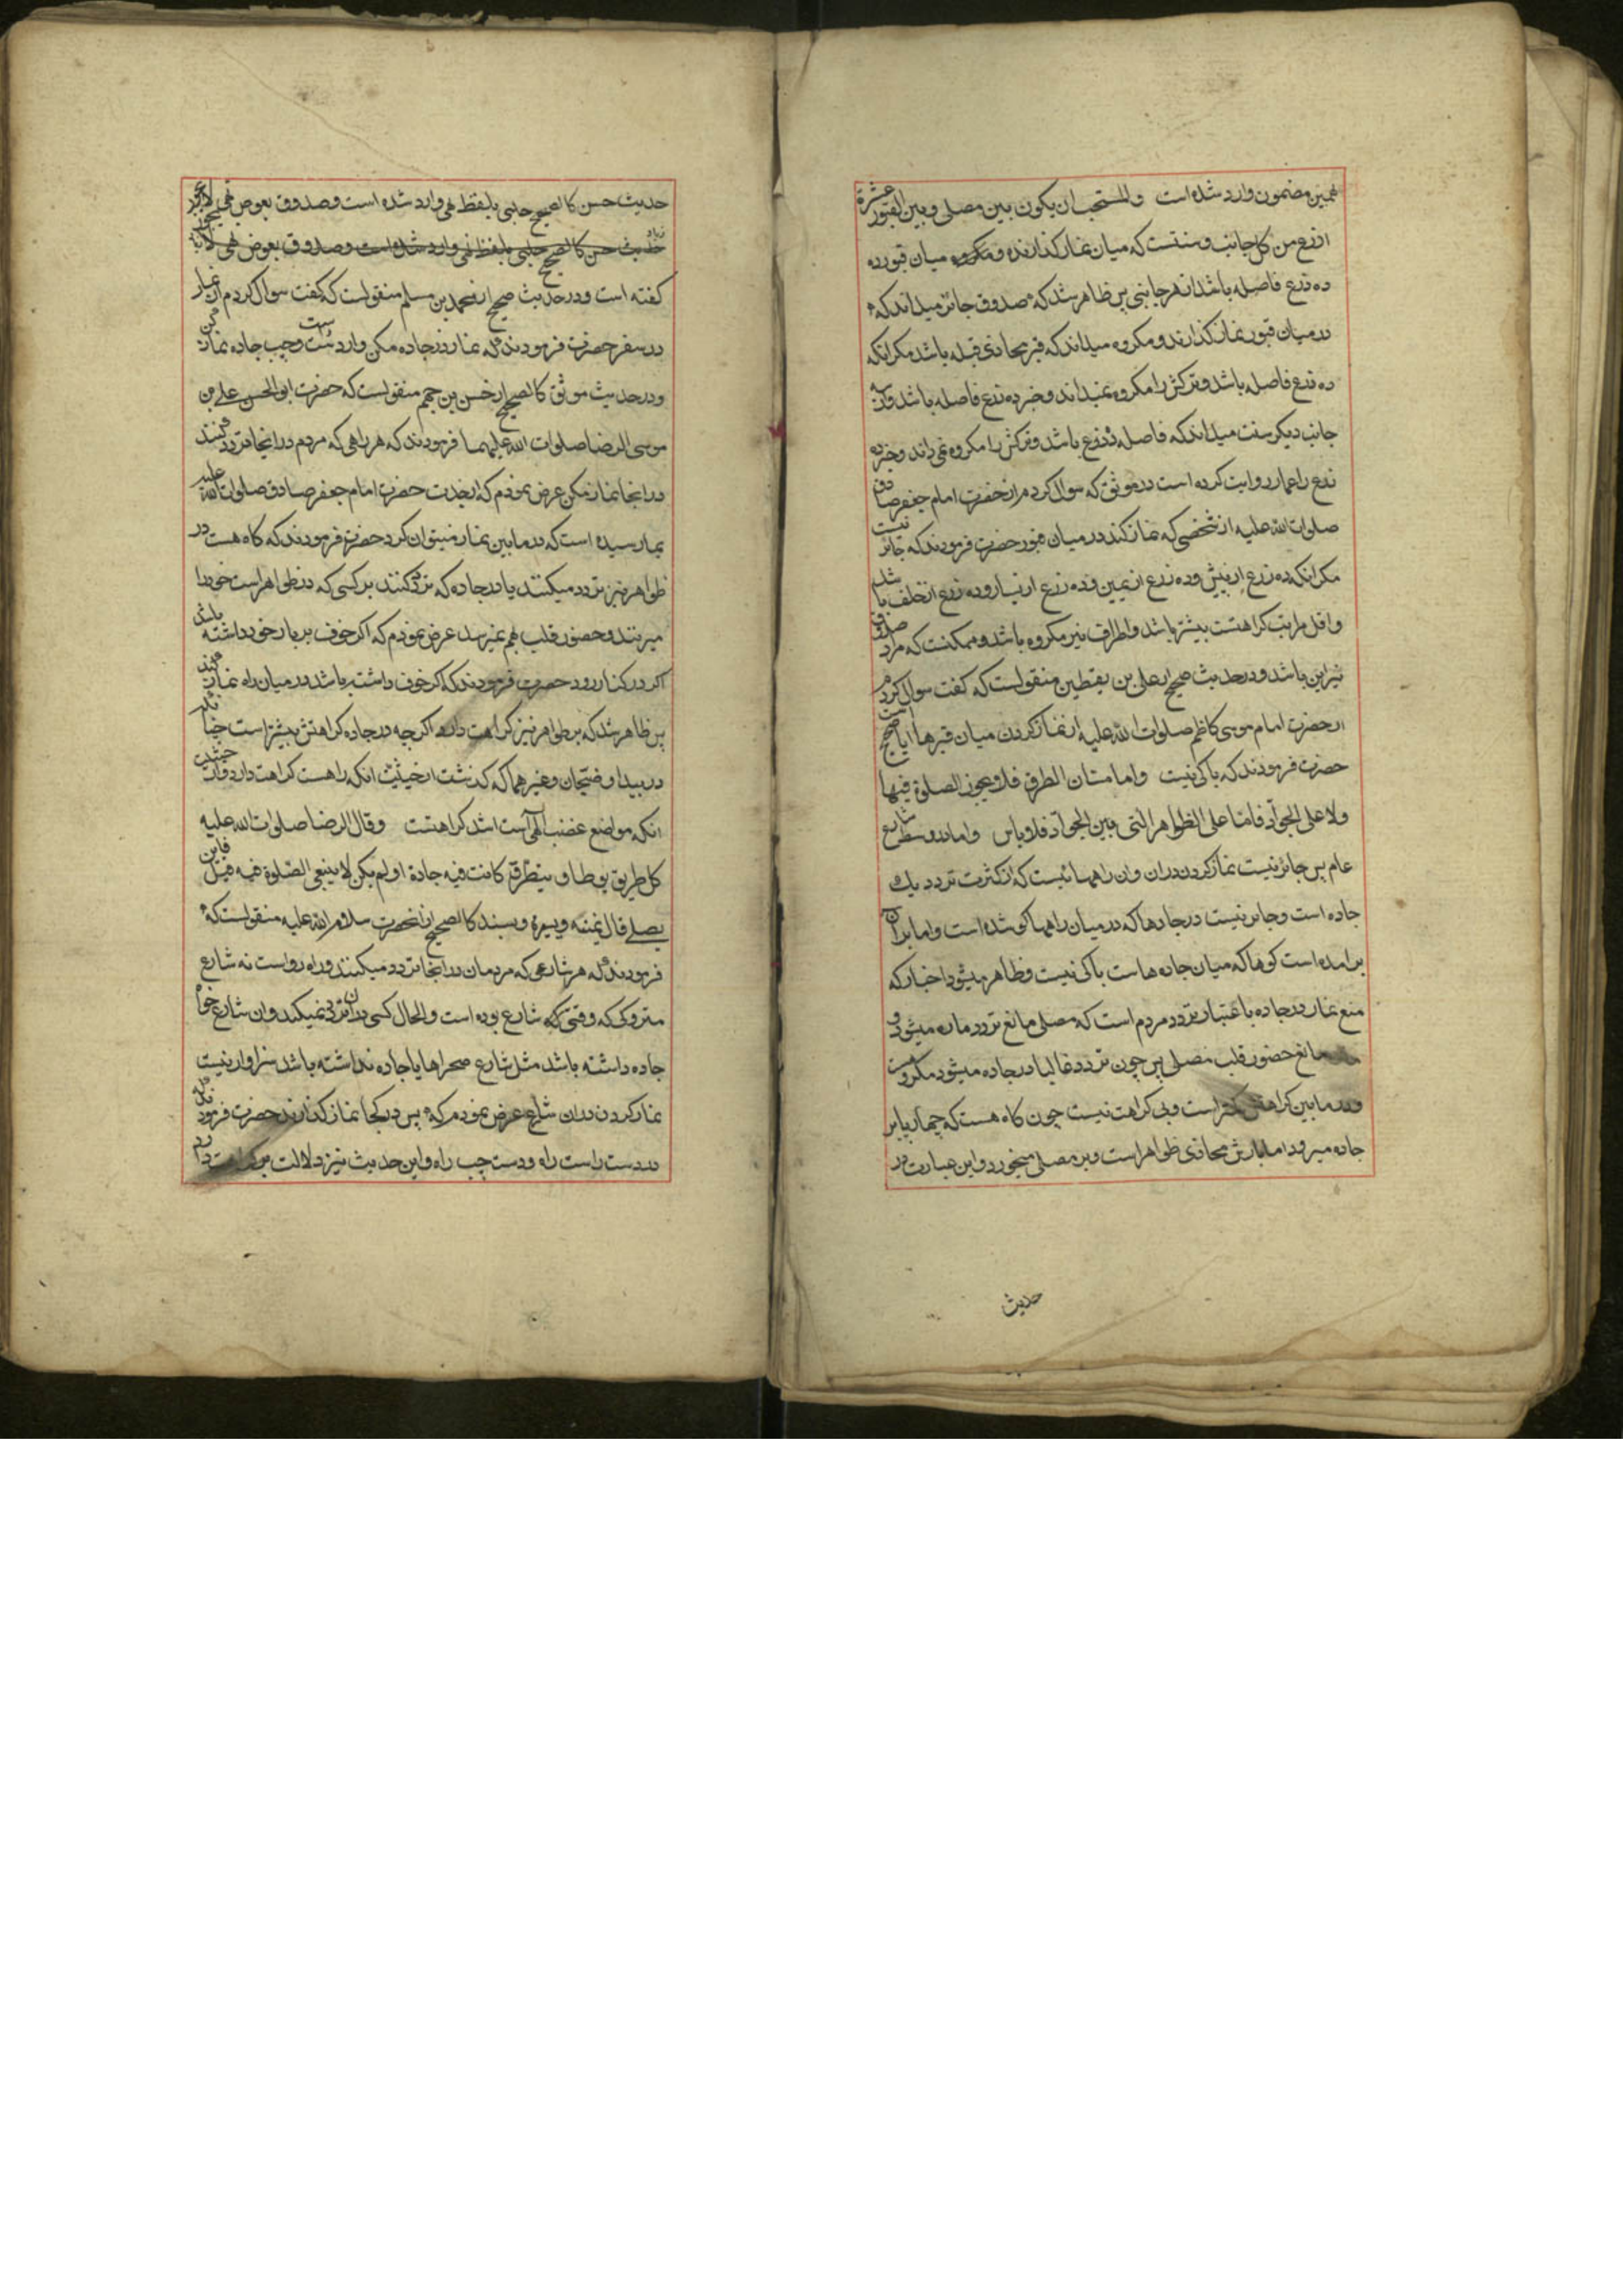 همین مضمون وارد شده است والمستحب ان یکون بین مصلی و بین القبور عشرة
اذرع من کل جانب و سنتست که میان نماز کذارنده و میان قبور ده
ده ذرع فاصله باشد از هر جانبی پس ظاهر شد که صدوق جائز میداند که
در میان قبور نماز کذارند و مکروه میداند که قبر محاذی قبله باشد مکر انکه
ده ذرع فاصله باشد و ترکش را مکروه نمیداند و خبر ده ذرع فاصله باشد و از سه
جانب دیکر سنت میداند که فاصله ده ذرع باشد و ترکش را مکروه نمی داند و خبر ده
ذرع را عمار روایت کرده است در موثق که سوال کردم از حضرت امام جعفر صادق
صلوات الله علیه از شخصی که نماز کند در میان قبور حضرت فرمودند که جائز نیست
مکر انکه ده ذرع از پیش و ده ذرع از یمین و ده ذرع از یسار و ده ذرع از خلف باشد
و اقل مراتب کراهتست بیشتر باشد و اطراف نیز مکروه باشد و ممکنست که مراد صدوق
نیز این باشد و در حدیث صحیح از علی بن یقطین منقولست که کفت سوال کردم
از حضرت امام موسی کاظم صلوات الله علیه از نماز کردن میان قبرها ایا صحیح است
حضرت فرمودند که باکی نیست واما متان الطرق فلا یجوز الصلوة فیها
ولا علی الجوآد فاما علی الظواهر التی بین الجوآد فلا باس و اما در وسط شارع
عام پس جائز نیست نماز کردن دران و ان راههائیست که از کثرت تردد یک
جاده است و جایز نیست در جادها که در میان راهها کو شده است و اما بران
برامده است کوها که میان جاده هاست باکی نیست و ظاهر میشود از اخبار که
منع نماز در جاده باعتبار تردد مردم است که مصلی مانع تردد ماره میشود و
مانع حضور قلب مصلی پس چون تردد غالبا در جاده میشود مکروهست
و در مابین کراهتش کمتر است و بی کراهت نیست چون کاه هست که چهار پا بر
جاده میرود اما بارش محاذی ظواهر است و بر مصلی میخورد و این عبارت در
حدیث
حدیث حسن کالصحیح حلبی بلفظ نهی وارد شده است و صدوق بعوض نهی لا یجوز
حدیث حسن کالصحیح حلبی بلفظ نهی وارد شده است و صدوق بعوض نهی
کفته است و در حدیث صحیح از محمد بن مسلم منقولست که کفت سوال کردم از نماز
در سفر حضرت فرمودند که نماز در جاده مکن و از دست راست و چپ جاده نماز کن
و در حدیث موثق کالصحیح از حسن بن جهم منقولست که حضرت ابو الحسن علی بن
موسی الرضا صلوات الله علیهما فرمودند که هر راهی که مردم در انجا تردد کنند
در انجا نماز مکن عرض نمودم که از جدت حضرت امام جعفر صادق صلوات الله علیه
بما رسیده است که در مابین نماز میتوان کرد حضرت فرمودند که کاه هست در
ظواهر نیز تردد میکنند یا در جاده که تردد کنند بر کسی که در ظواهر است خود را
میزنند و حضور قلب بهم نمیرسد عرض نمودم که اکر خوف بر بار خود داشته باشد
اکر در کنار رود حضرت فرمودند که اکر خوف داشته باشد در میان راه نماز کند
پس ظاهر شد که بر ظواهر نیز کراهت دارد اکر چه در جاده کراهتش بیشتر است چنانکه
در بیدا و ضجنان و غیر هما که کذشت از حیثیت انکه راهست کراهت دارد و از حیثیت
انکه مواضع غضب الهی است اشد کراهتست وقال الرضا صلوات الله علیه
کل طریق یوطاو یتطرق کانت فیه جادة او لم یکن لا ینبغی الصّلوة فیه قیل فاین
یصلی قال یمنة و یسرة و بسند کالصحیح از انحضرت سلام الله علیه منقولست که
فرمودند که هر شارعی که مردمان در انجا تردد میکنند و راه رواست نه شارع
متروکی که وقتی که شارع بوده است و الحال کسی دران تردد نمیکند و ان شارع خواه
جاده داشته باشد مثل شارع صحراها یا جاده نداشته باشد سزاوار نیست
نماز کردن دران شارع عرض نمودم که پس در کجا نماز کذارند حضرت فرمودند که
در دست راست راه و دست چپ راه و این حدیث نیز دلالت بر کراهت دارد